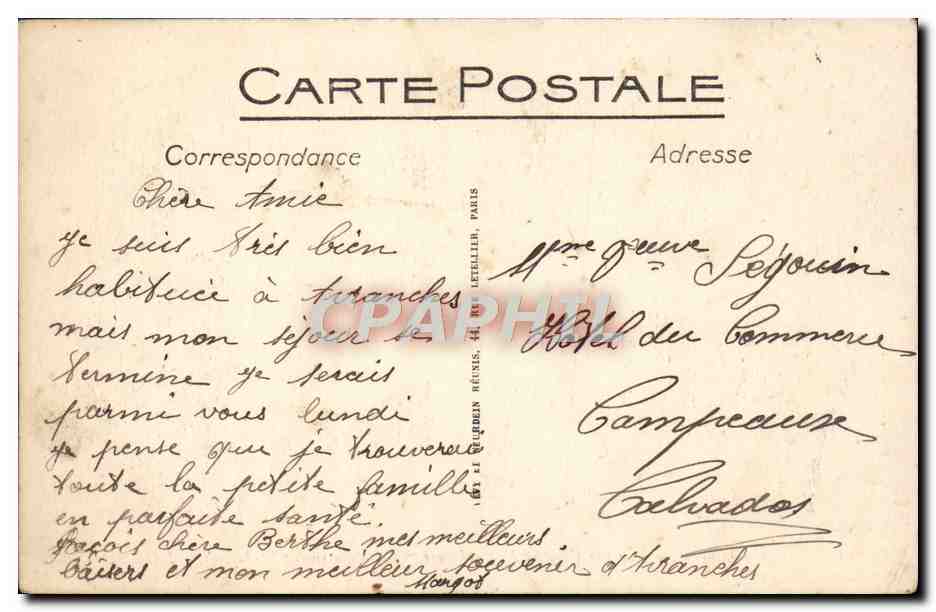 CARTE POSTALE
Correspondance
Adresse
Chère Amie
je suis très bien
habituée à Avranches
mais mon séjour se
termine je serais
parmi vous lundi
je pense que je trouverai
toute la petite famille
en parfaite santé.
Reçois chère Berthe mes meilleurs
baisers et mon meilleur souvenir d'Avranches
Margot
LEVY ET NEURDEIN RÉUNIS, 44, RUE LETELLIER, PARIS
Mme Veuve Ségouin
Hôtel du Commerce
Campeaux
Calvados
CPAPHIL